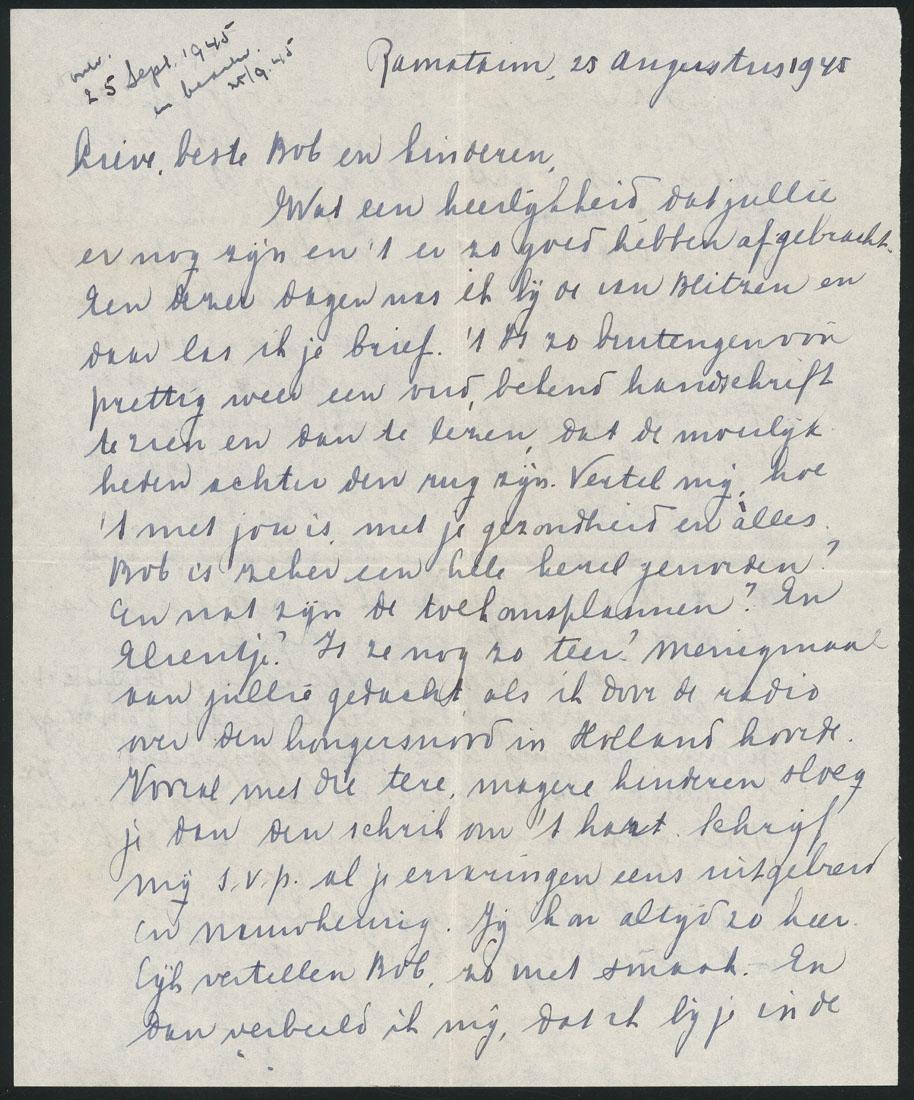 ontv.
25 Sept. 1945
en beantw.
25/9.45
Ramataim, 25 Augustus 1945
Lieve, beste Bob en kinderen,
Wat een heerlijkheid dat jullie
er nog zijn en 't er zo goed hebben afgebracht.
Een dezer dagen was ik bij de van Blitzen en
daar las ik je brief. 't Is zo buitengewoon
prettig weer een oud, bekend handschrift
te zien en dan te lezen, dat de moeilijk
heden achter den rug zijn. Vertel mij, hoe
't met jou is, met je gezondheid en àlles.
Bob is zeker een hele kerel geworden?
En wat zijn de toekomsplannen? En
Elsentje? Is ze nog zo teer? Menigmaal
aan jullie gedacht als ik door de radio
over den hongersnood in Holland hoorde.
Vooral met die tere, magere kinderen sloeg
je dan den schrik om 't hart. Schrijf
mij s.v.p. al je ervaringen eens uitgebreid
en nauwkeurig. Jij kon altijd zo heer
lijk vertellen Bob, zo met smaak. En
dan verbeeld ik mij, dat ik bij je in de